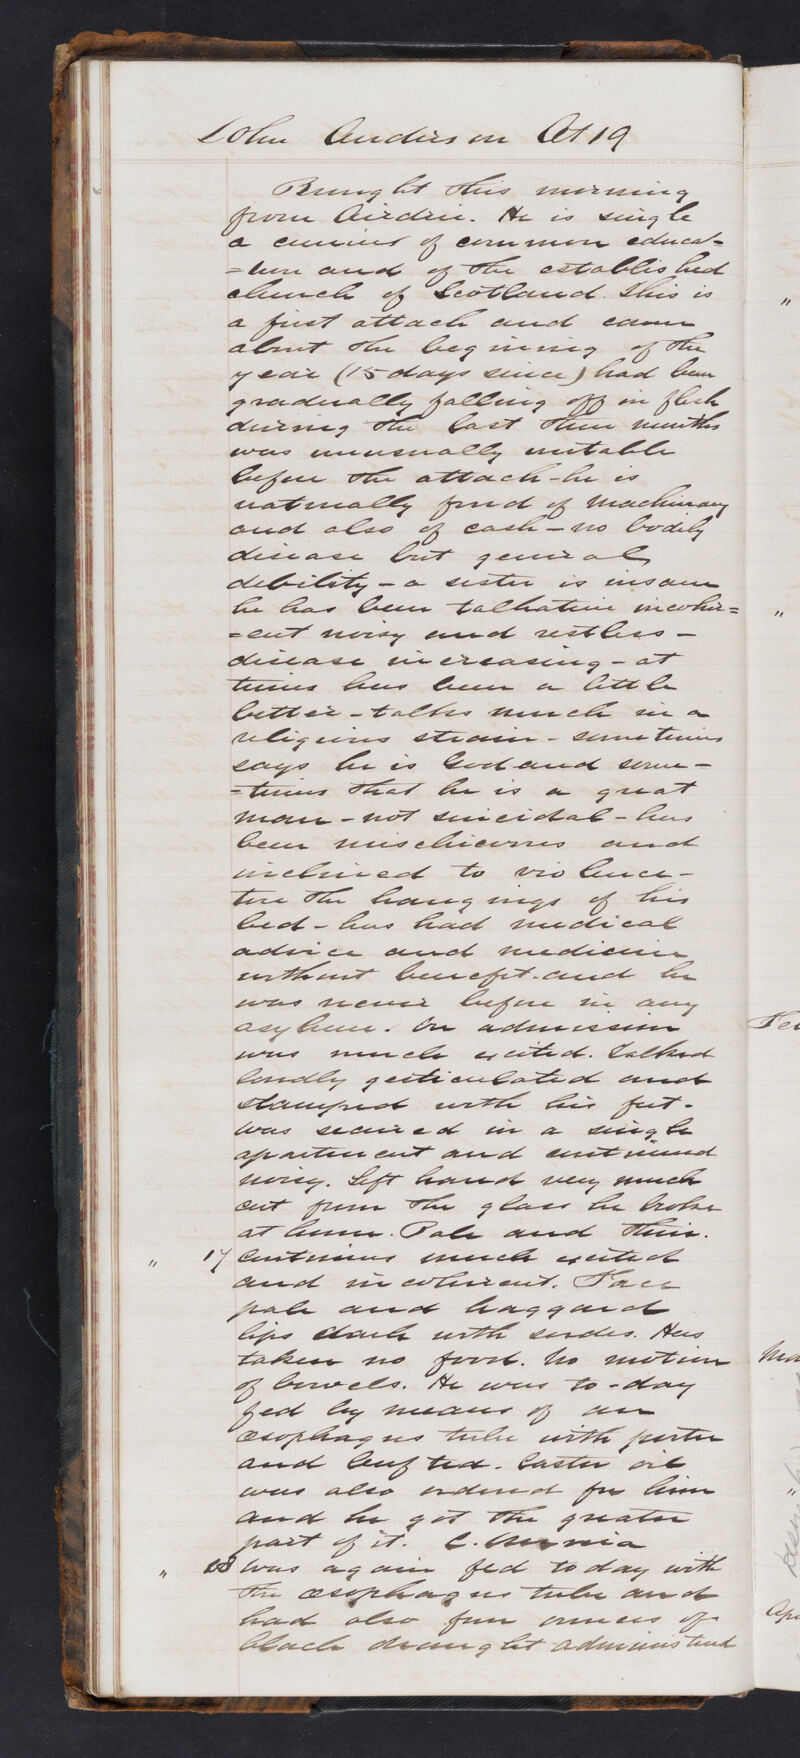 John Anderson Æt 19
Brought this morning
from Airdrie. He is single
a currier of common educat-
=ion and of the established
church of Scotland. This is
a first attack and came
about the beginning of the
year (15 days since) had been
gradually falling off in flesh
during the last three months
was unusually irritable
before the attack - he is
naturally fond of machinary
and also of cash - no bodily
disease but general
debility - a sister is insane
he has been talkative incoher=
=ent noisy and restless -
disease increasing - at
times has been a little
better - talks much in a
religious strain - sometimes
says he is God and some-
=times that he is a great
man - not suicidal - has
been mischievous and
inclined to violence -
tore the hangings of his
bed - has had medical
advice and medicine
without benefit. and he
was never before in any
asylum. On admission
was much excited. Talked
loudly gesticulated and
stamped with his feet.
was secured in a single
apartment and continued
noisy. Left hand very much
cut from the glass he broke
at home. Pale and thin.
" 17 Continues much excited
and incoherent. Face
pale and haggard
lips dark with sordes. Has
taken no food. No motion
of bowels. He was to-day
fed by means of an
œsophagus tube with porter
and beef tea. Castor oil
was also ordered for him
and he got the greater
part of it.
" 18 Was again fed today with
the œsophagus tube and
had also four ounces of
black draught administered